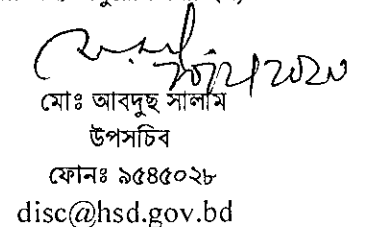 ২০/2/2020
মোঃ আবদুছ সালাম
উপসচিব
ফোনঃ ৯৫৪৫০২৮
disc@hsd.gov.bd